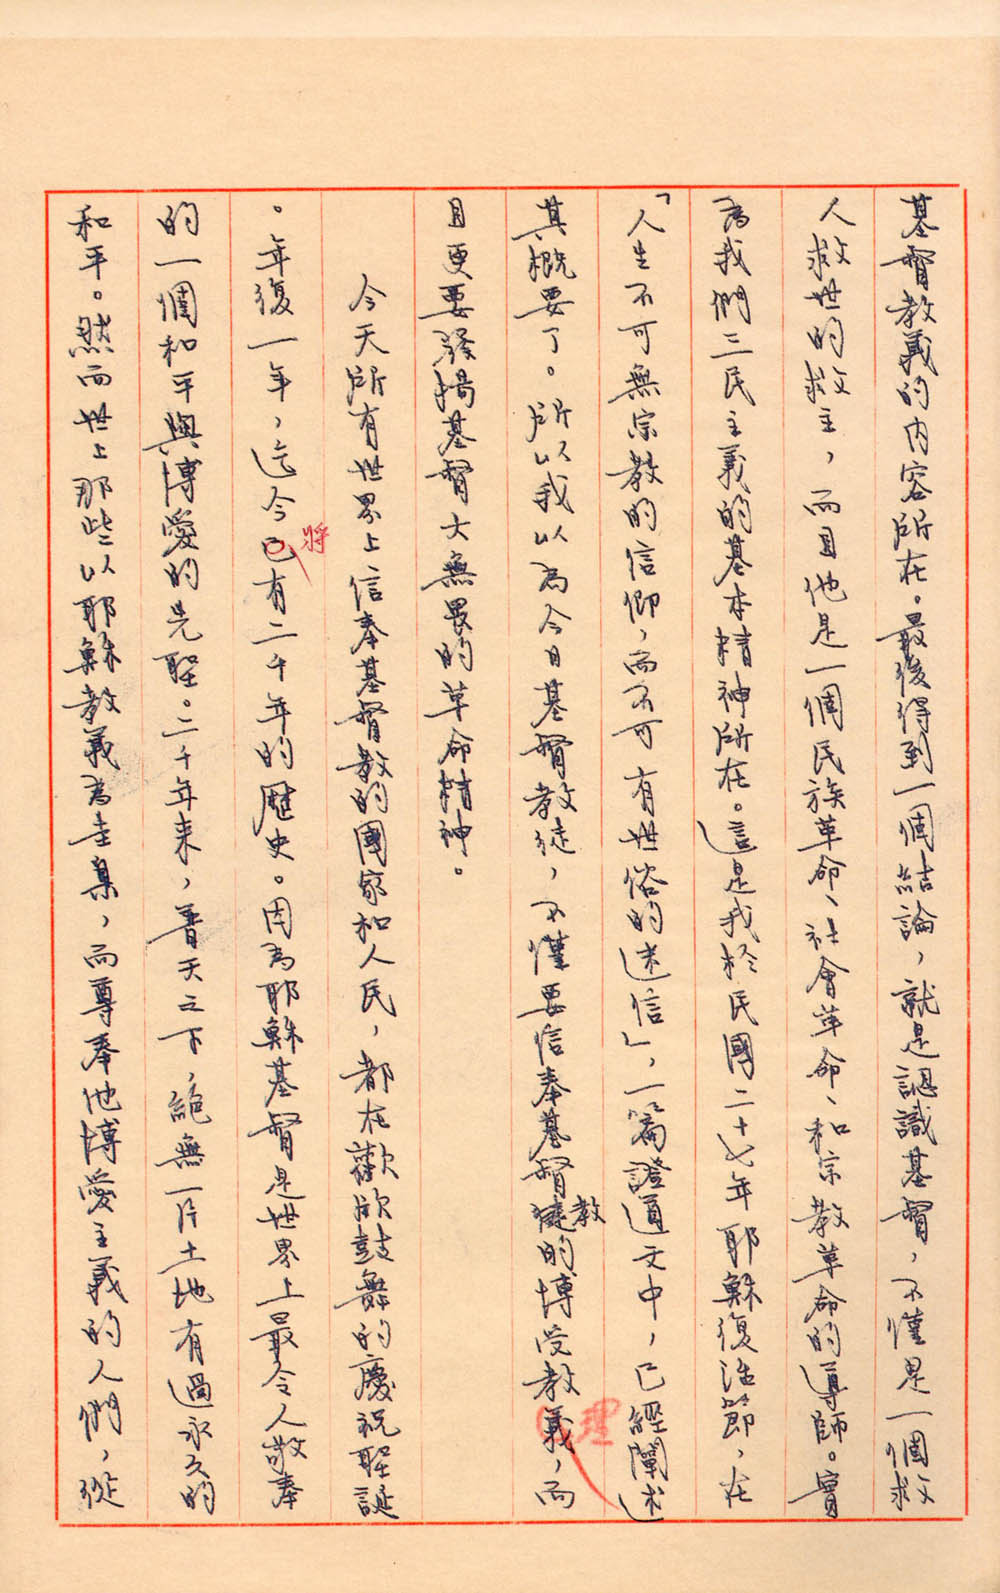 基督教義的內容所在。最後得到一個結論，就是認識基督，不僅是一個救
人救世的救主，而且他是一個民族革命、社會革命、和宗教革命的導師。實
為我們三民主義的基本精神所在。這是我於民國二十七年耶穌復活節，在
「人生不可無宗教的信仰，而不可有世俗的迷信」，一篇證道文中，已經闡述
其概要了。所以我以為今日基督教徒，不僅要信奉基督教的博愛教義，而
理
且更要發揚基督大無畏的革命精神。
今天所有世界上信奉基督教的國家和人民，都在歡欣鼓舞的慶祝聖誕
。年復一年，迄今已有二千年的歷史。因為耶穌基督是世界上最令人敬奉
將
的一個和平與博愛的先聖。二千年來，普天之下，絕無一片土地有過永久的
和平。然而世上那些以耶穌教義為圭臬，而尊奉他博愛主義的人們，從